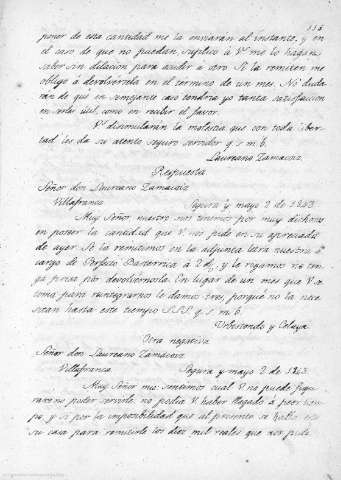 poner de esta cantidad me la enviaran al instante, y en
el caso de que no puedan, suplico á Vs me lo hagan
saber sin dilacion para acudir á otro. Si la remiten me
obligo á devolversela en el termino de un mes. No duda
ran de que en semejante caso tendria yo tanta satisfaccion
en serles útil, como en recibir el favor.
Vs disimularan la molestia que con toda liber
tad les da su atento seguro servidor q. s. m. b.
Laureano Zamacoiz
Respuesta
Señor don Laureano Zamacoiz
Villafranca Segura y mayo 2 de 1843.
Muy Señor nuestro nos tenemos por muy dichosos
en poseer la cantidad que V. nos pide en su apreciada
de ayer. Se la remitimos en la adjunta letra nuestra á
cargo de Perfecto y la rogamos no ten
ga prisa por devolvernosla. En lugar de un mes que V. se
toma para reintegrarnos le damos tres, porque no la nece
sitan hasta este tiempo S.S.S. q. s. m. b.
Urbestondo y Celaya.
Otra negativa
Señor don Laureano Zamacoiz
Villafranca Segura y mayo 2 de 1843.
Muy Señor mio: sentimos cual V. no puede figu
rarse no poder servirle. no podia V. haber llegado á peor tiem
po, y si por la imposibilidad que al presente se halla
su casa para remitirle los diez mil reales que nos pide